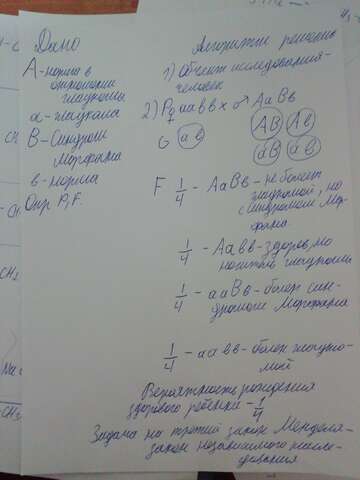 Дано
А-норма в
отношении
глаукомы
а-глаукома
В-Синдром
Марфана
в-норма
Опр P, F.
Алгоритм решения
1) Объект исследования-
человек
2) P ♀ аавв х ♂ АаВв
G ав АВ Ав
аВ ав
F 1/4 - АаВв-не болеет
глаукомой, но
с синдромом Мар-
фана
1/4 - Аавв-здоров, но
носитель глаукомы
1/4 - ааВв-болен син-
дромом Марфана
1/4 - аавв-болен глауко-
мой
Вероятность рождения
здорового ребёнка - 1/4
Задача на третий закон Менделя-
закон независимого насле-
дования